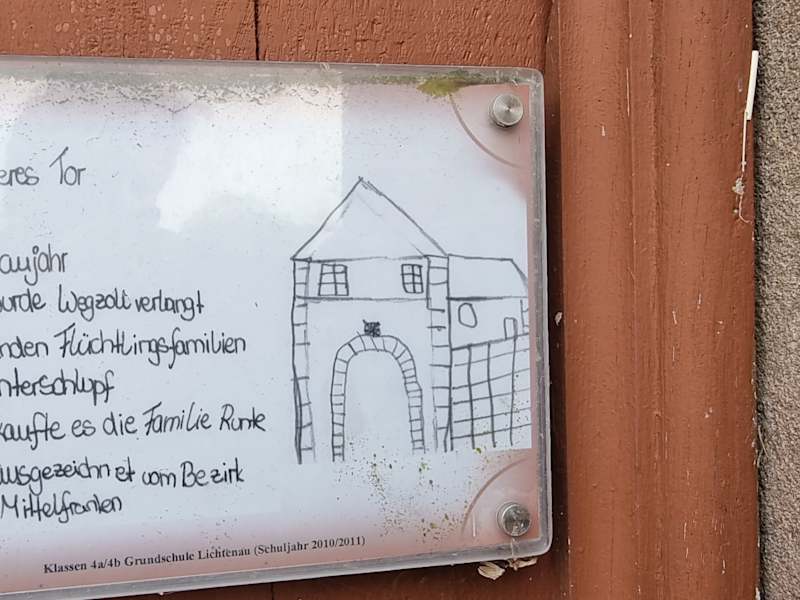 eres Tor
aujahr
urde Wegzoll verlangt
nden Flüchtlingsfamilien
nterschlupf
kaufte es die Familie Runk
ausgezeichnet vom Bezirk
Mittelfranken
Klassen 4a/4b Grundschule Lichtenau (Schuljahr 2010/2011)